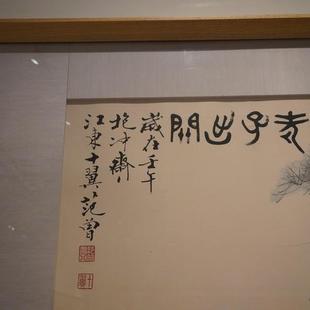 老子出關
歲在壬午
抱冲齋
江東十翼范曾